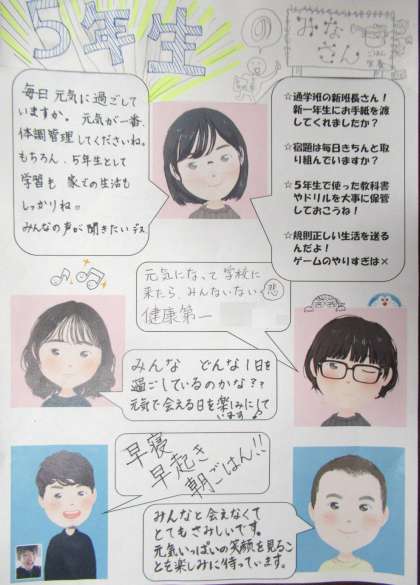 5年生
の
みなさん
毎日 元気に過ごして
いますか。 元気が一番、
体調管理してくださいね。
もちろん、5年生として
学習も 家での生活も
しっかりね。
みんなの声が聞きたいデス
☆通学班の新班長さん！
新一年生にお手紙を渡
してくれましたか？
☆宿題は毎日きちんと取
り組んでいますか？
☆５年生で使った教科書
やドリルを大事に保管
しておこうね！
☆規則正しい生活を送る
んだよ！
ゲームのやりすぎは×
元気になって学校に
来たら、みんないない
悲
健康第一
みんな どんな1日を
過ごしているのかな？？
元気で会える日を楽しみにして
います♪
早寝
早起き
朝ごはん!!
みんなと会えなくて
とてもさみしいです。
元気いっぱいの笑顔を見るこ
とを楽しみに待っています。